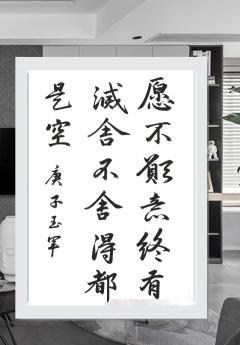 愿不願意终有
滅舍不舍得都
是空
庚子玉军